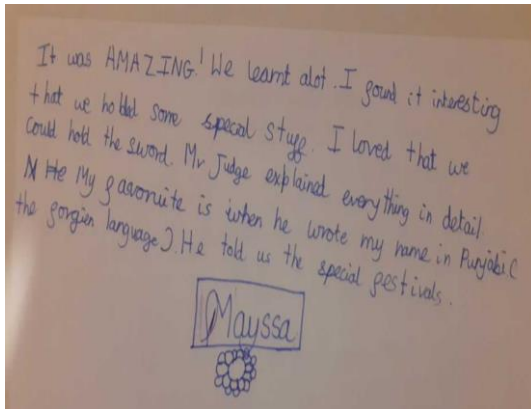 It was AMAZING! We learnt alot. I gound it interesting
that we holded some special stugg. I loved that we
could hold the sword. Mr Judge explained everything in detail.
He My gavoruite is when he wrote my name in Punjabi. (
the gorgien language). He told us the special gestivals.
Mayssa